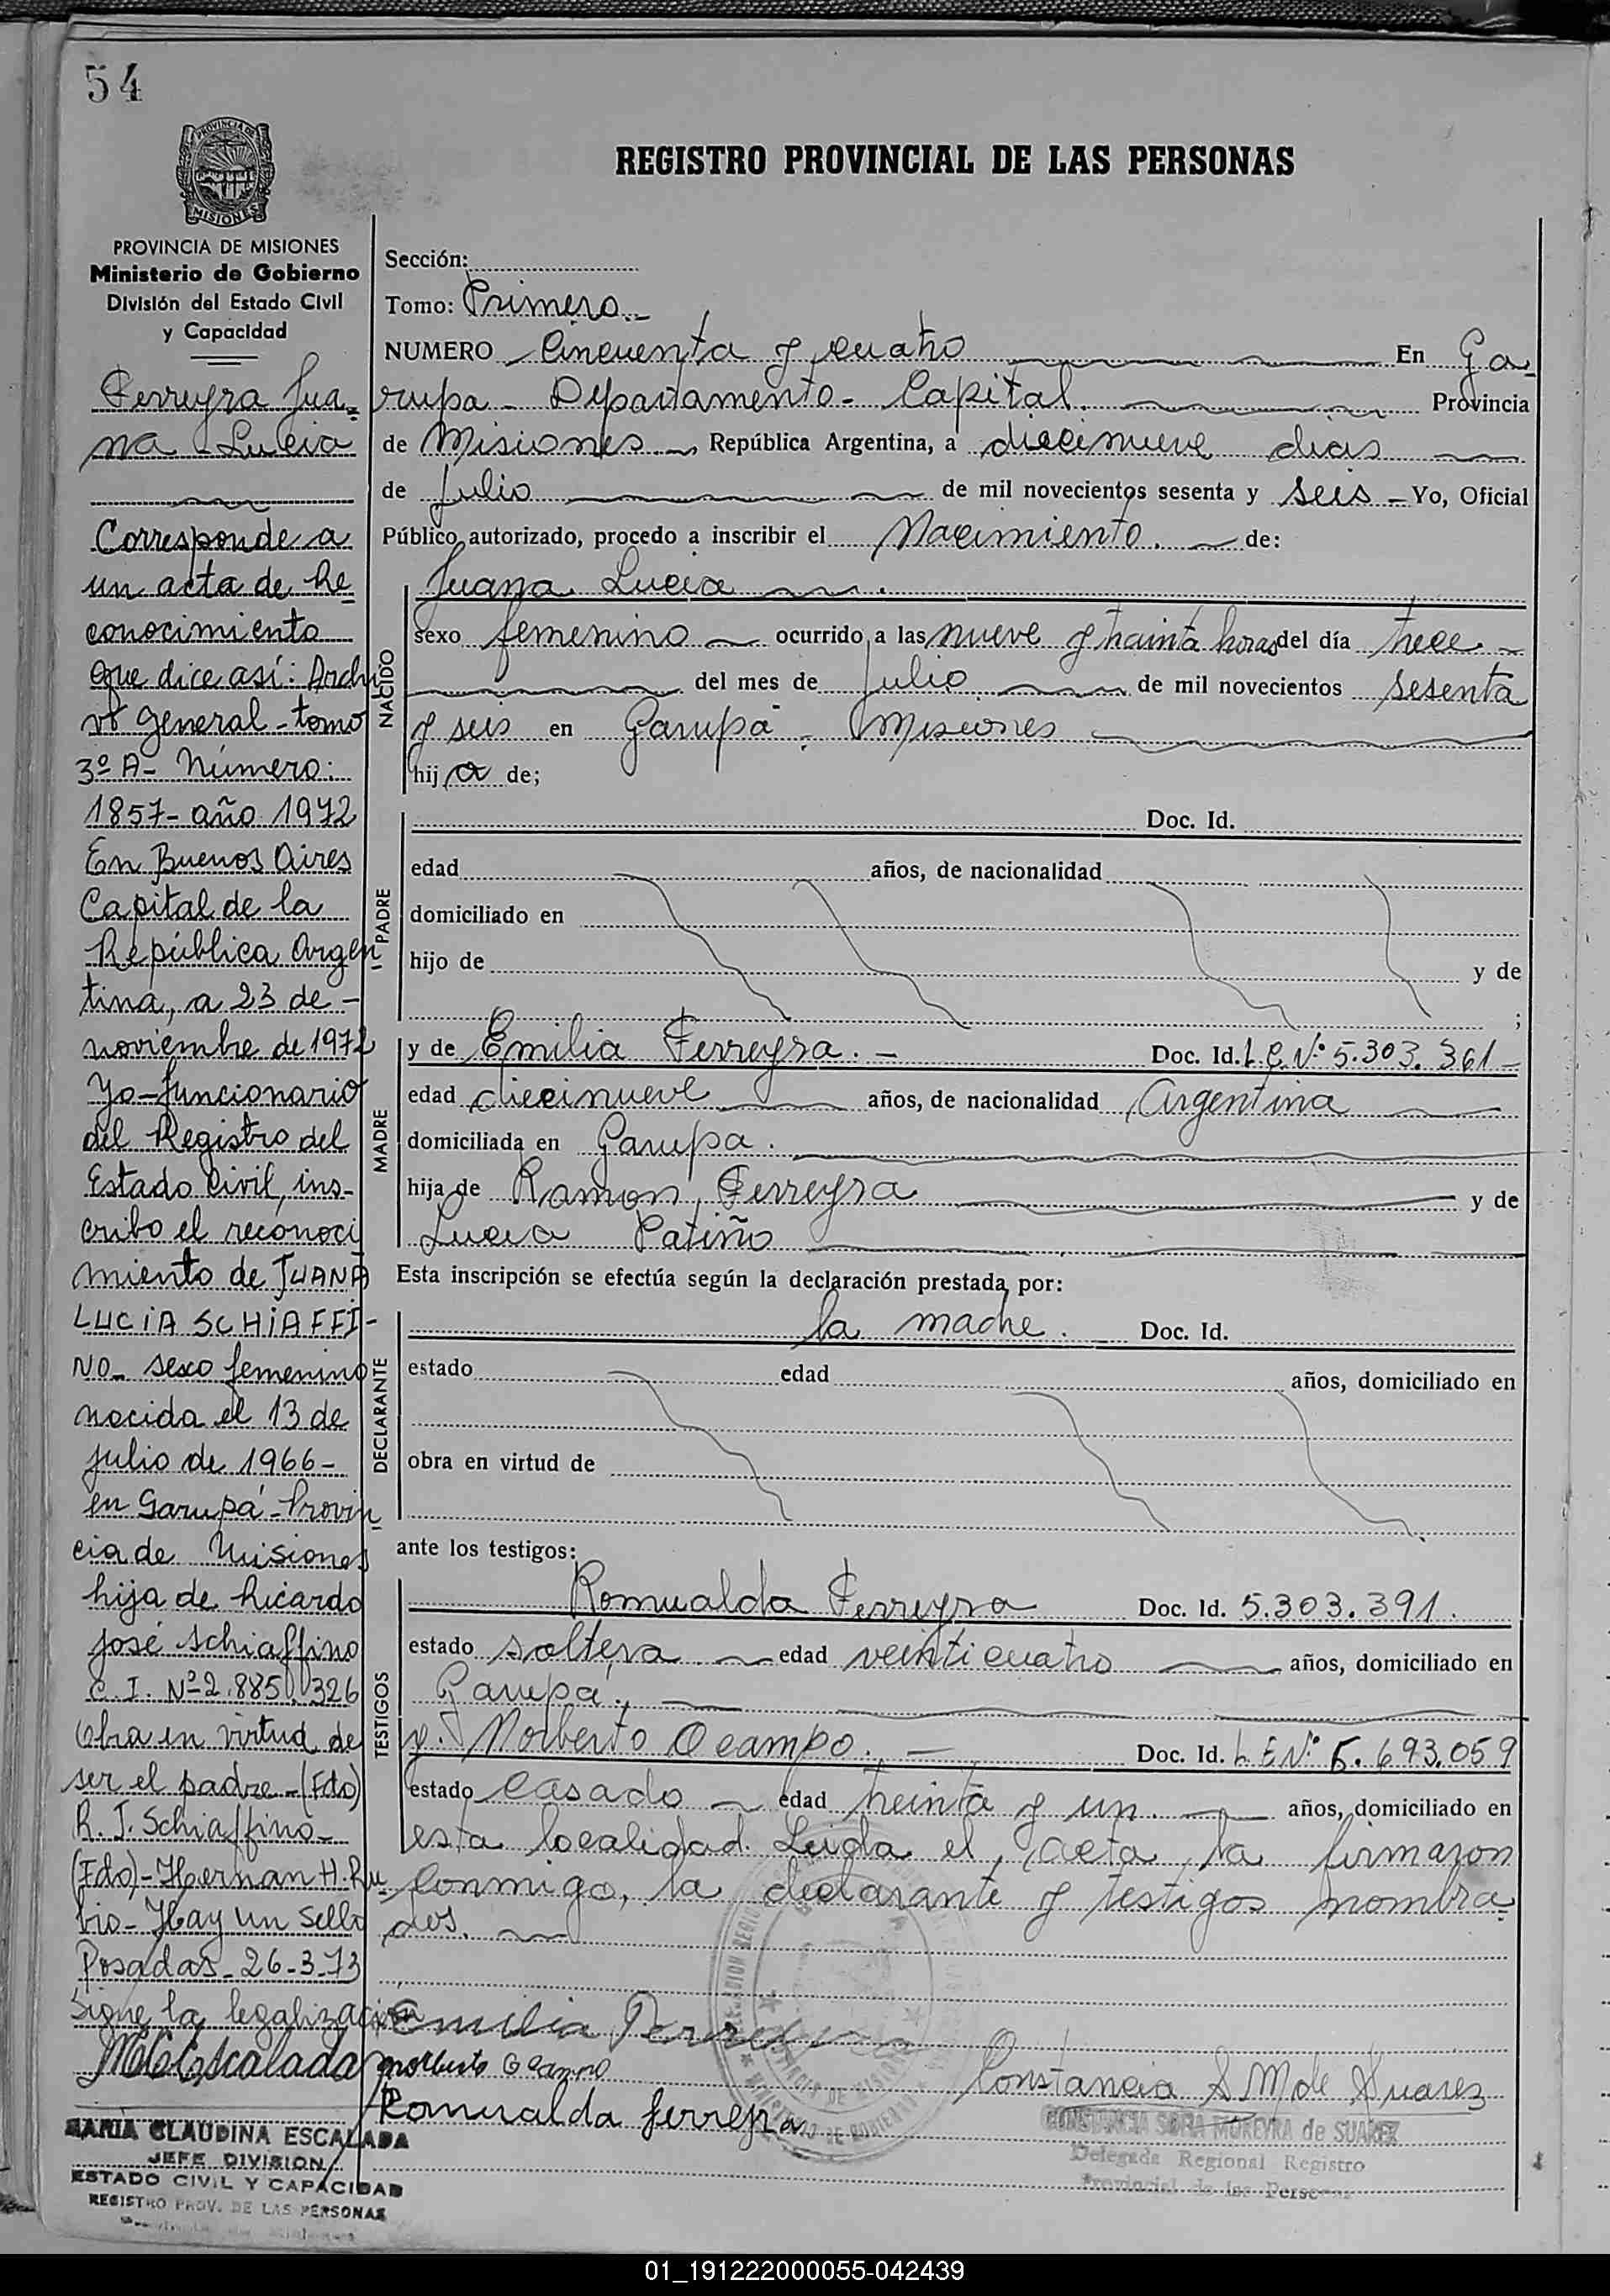 54
PROVINCIA DE
MISIONES
REGISTRO PROVINCIAL DE LAS PERSONAS
PROVINCIA DE MISIONES
Ministerio de Gobierno
División del Estado Civil
y Capacidad
Ferreyra Jua-
na Lucia
Corresponde a
un acta de Re-
conocimiento
que dice así: Archi
vo general - tomo
3º A - Número:
1857 - año 1972
En Buenos Aires
Capital de la
República Argen
tina, a 23 de -
noviembre de 1972
Yo - funcionario
del Registro del
Estado Civil, ins-
cribo el reconoci
miento de JUANA
LUCIA SCHIAFFI-
NO - sexo femenino
nacida el 13 de
julio de 1966 -
en Garupá - Provin
cia de Misiones
hija de Ricardo
José Schiaffino
C. I. Nº 2.885.326
Obra en virtud de
ser el padre - (Fdo)
R. J. Schiaffino -
(Fdo) - Hernan H. Ru
bio - Hay un sello
Posadas - 26-3-73
Sigue la legalización
MCEscalada
MARIA CLAUDINA ESCALADA
JEFE DIVISION
ESTADO CIVIL Y CAPACIDAD
REGISTRO PROV. DE LAS PERSONAS
Sección:
Tomo: Primero.-
NUMERO Cincuenta y cuatro En Ga-
rupa - Departamento - Capital. Provincia
de Misiones -, República Argentina, a diecinueve dias
de Julio de mil novecientos sesenta y seis - Yo, Oficial
Público autorizado, procedo a inscribir el Nacimiento. de:
NACIDO
Juana Lucia
sexo femenino ocurrido a las nueve y trainta horas del día trece
del mes de Julio de mil novecientos sesenta
y seis en Garupá - Misiones
hij a de;
PADRE
Doc. Id.
edad años, de nacionalidad
domiciliado en
hijo de y de
;
MADRE
y de Emilia Ferreyra. - Doc. Id. L.C. Nº 5.303.361 -
edad diecinueve años, de nacionalidad Argentina
domiciliada en Garupa.
hija de Ramon Ferreyra y de
Lucia Patiño
Esta inscripción se efectúa según la declaración prestada por:
DECLARANTE
la madre. Doc. Id.
estado edad años, domiciliado en
obra en virtud de
ante los testigos:
TESTIGOS
Romualda Ferreyra Doc. Id. 5.303.391.
estado soltera edad veinticuatro años, domiciliado en
Garupá.
y. Norberto Ocampo. - Doc. Id. L E Nº 5.693.059
estado casado edad treinta y un. años, domiciliado en
esta localidad. Leida el acta, la firmaron
conmigo, la declarante y testigos nombra-
dos.
Emilia Ferreyra
Norberto Ocampo
Constancia S M de Suarez
Romualda ferreyra
CONSTANCIA SOFIA MOREYRA de SUAREZ
Delegada Regional Registro
Provincial de las Personas
01_191222000055-042439